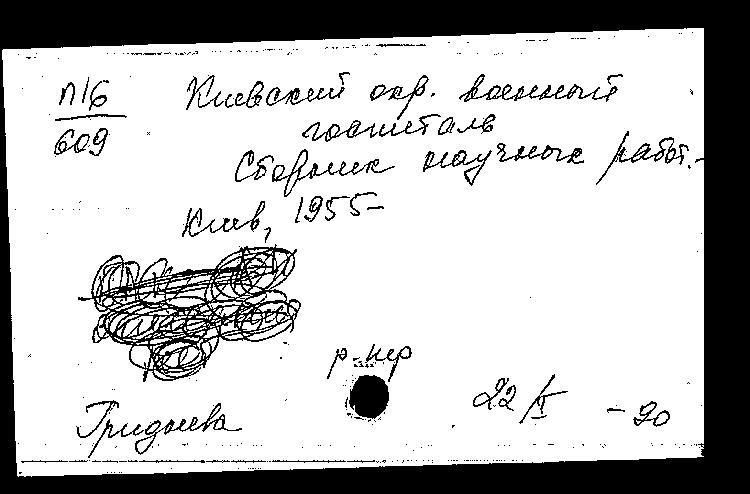 П16
609
Киевский окр. военный
госпиталь
Сборник научных работ.-
Киев, 1955-
р-пер
Гриднева
22/I -90